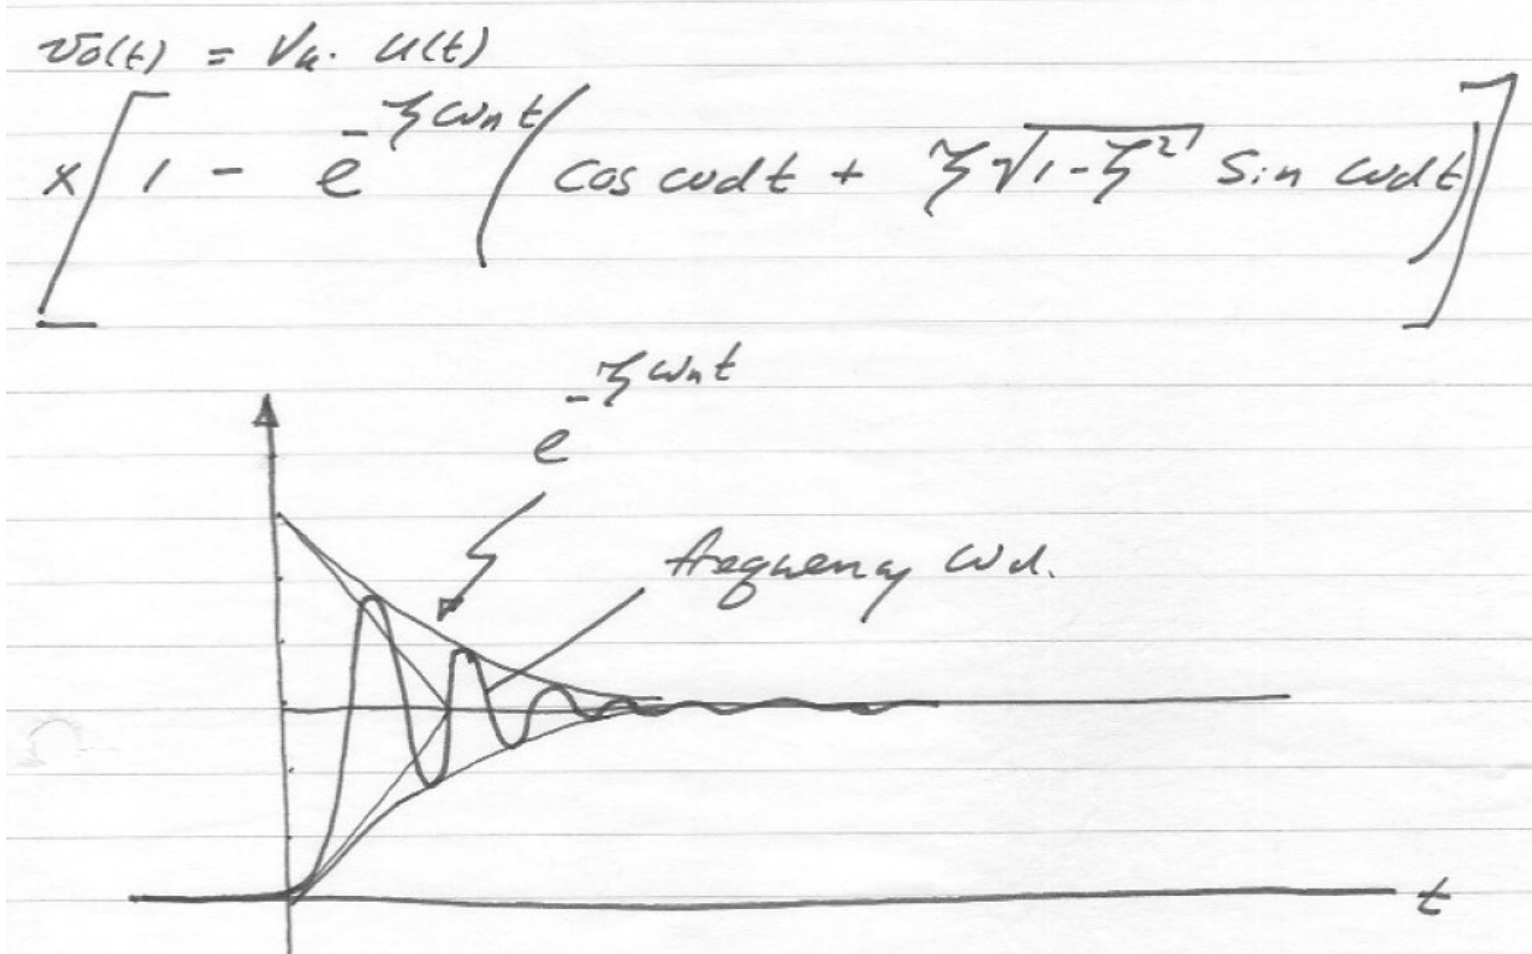 vo(t) = Vu. u(t)
x[1 - e^-ζωnt (cos ωdt + ζ√1-ζ² Sin ωdt)]
e^-ζωnt
frequency ωd.
t